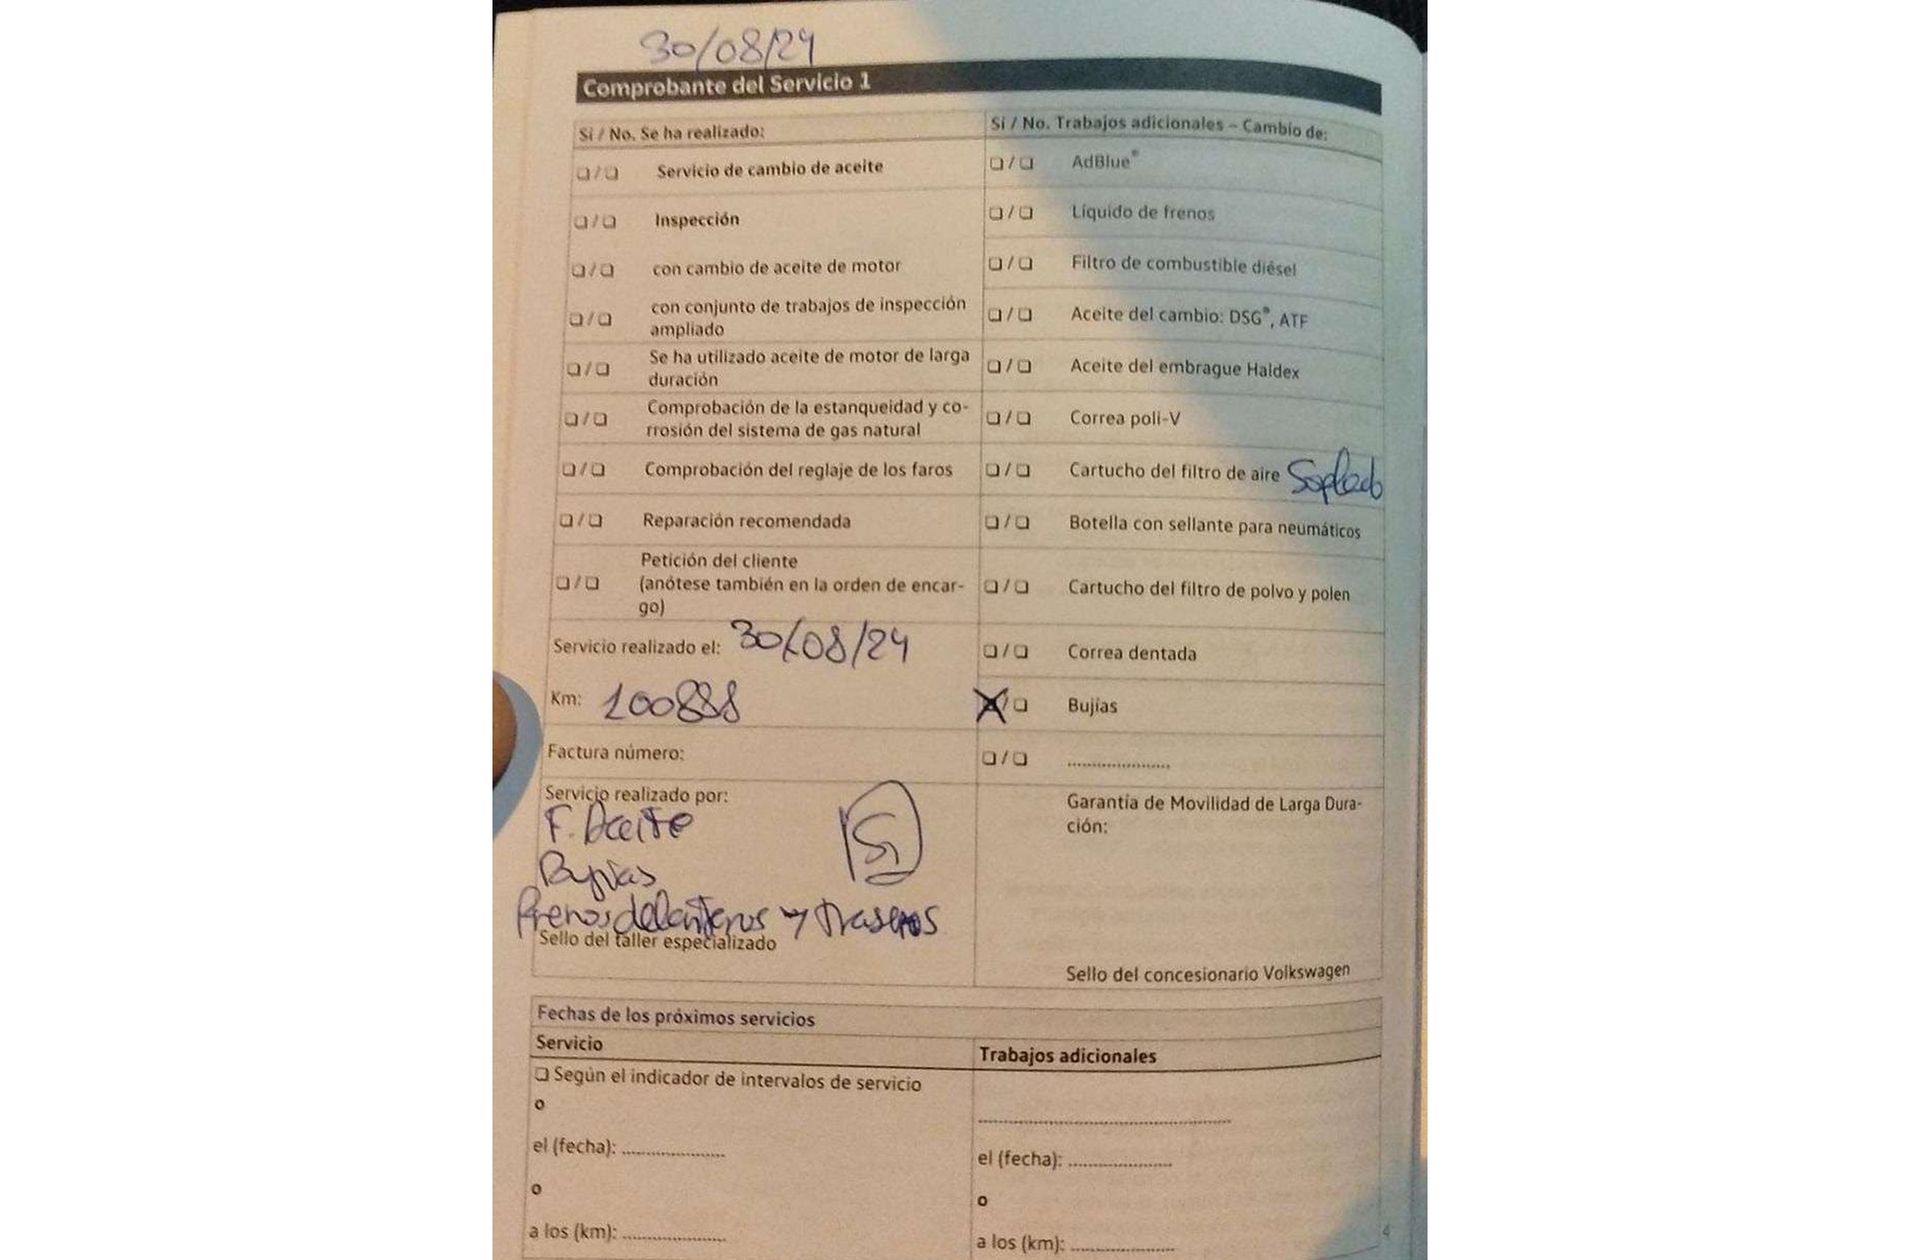 30/08/24
Comprobante del Servicio 1
Sí / No. Se ha realizado:
❏ / ❏ Servicio de cambio de aceite
❏ / ❏ Inspección
❏ / ❏ con cambio de aceite de motor
❏ / ❏ con conjunto de trabajos de inspección
ampliado
❏ / ❏ Se ha utilizado aceite de motor de larga
duración
❏ / ❏ Comprobación de la estanqueidad y co-
rrosión del sistema de gas natural
❏ / ❏ Comprobación del reglaje de los faros
❏ / ❏ Reparación recomendada
❏ / ❏ Petición del cliente
(anótese también en la orden de encar-
go)
Servicio realizado el: 30/08/24
Km: 100888
Factura número:
Servicio realizado por:
F. Aceite
Bujías
Frenos delanteros y traseros
Sello del taller especializado
Sí / No. Trabajos adicionales – Cambio de:
❏ / ❏ AdBlue®
❏ / ❏ Líquido de frenos
❏ / ❏ Filtro de combustible diésel
❏ / ❏ Aceite del cambio: DSG®, ATF
❏ / ❏ Aceite del embrague Haldex
❏ / ❏ Correa poli-V
❏ / ❏ Cartucho del filtro de aire Soplado
❏ / ❏ Botella con sellante para neumáticos
❏ / ❏ Cartucho del filtro de polvo y polen
❏ / ❏ Correa dentada
X / ❏ Bujías
❏ / ❏ .....................
Garantía de Movilidad de Larga Dura-
ción:
Sello del concesionario Volkswagen
Fechas de los próximos servicios
Servicio
❏ Según el indicador de intervalos de servicio
o
el (fecha): .....................
o
a los (km): .....................
Trabajos adicionales
.....................
el (fecha): .....................
o
a los (km): .....................
4